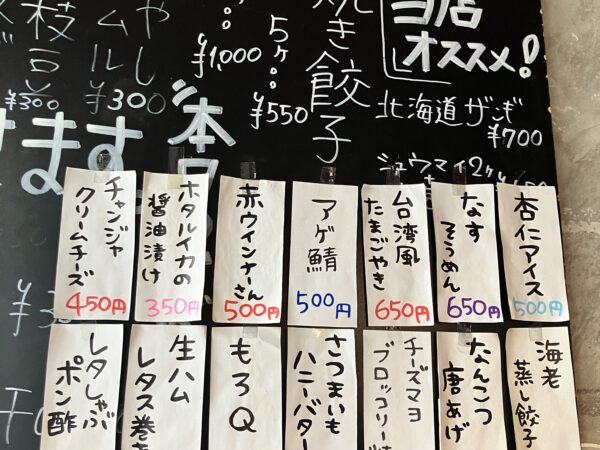 当店
オススメ!
北海道ザンギ
¥700
シュウマイ2ヶ
焼き餃子
5ヶ
¥550
¥1,000
¥300
枝豆
¥300
本
ます
杏仁アイス
500円
なす
そうめん
650円
台湾風
たまごやき
650円
アゲ鯖
500円
赤ウインナーさん
500円
ホタルイカの
醤油漬け
350円
チャンジャ
クリームチーズ
450円
海老
蒸し餃子
なんこつ
唐あげ
チーズマヨ
ブロッコリー
さつまいも
ハニーバター
もろQ
生ハム
レタス巻き
レタしゃぶ
ポン酢